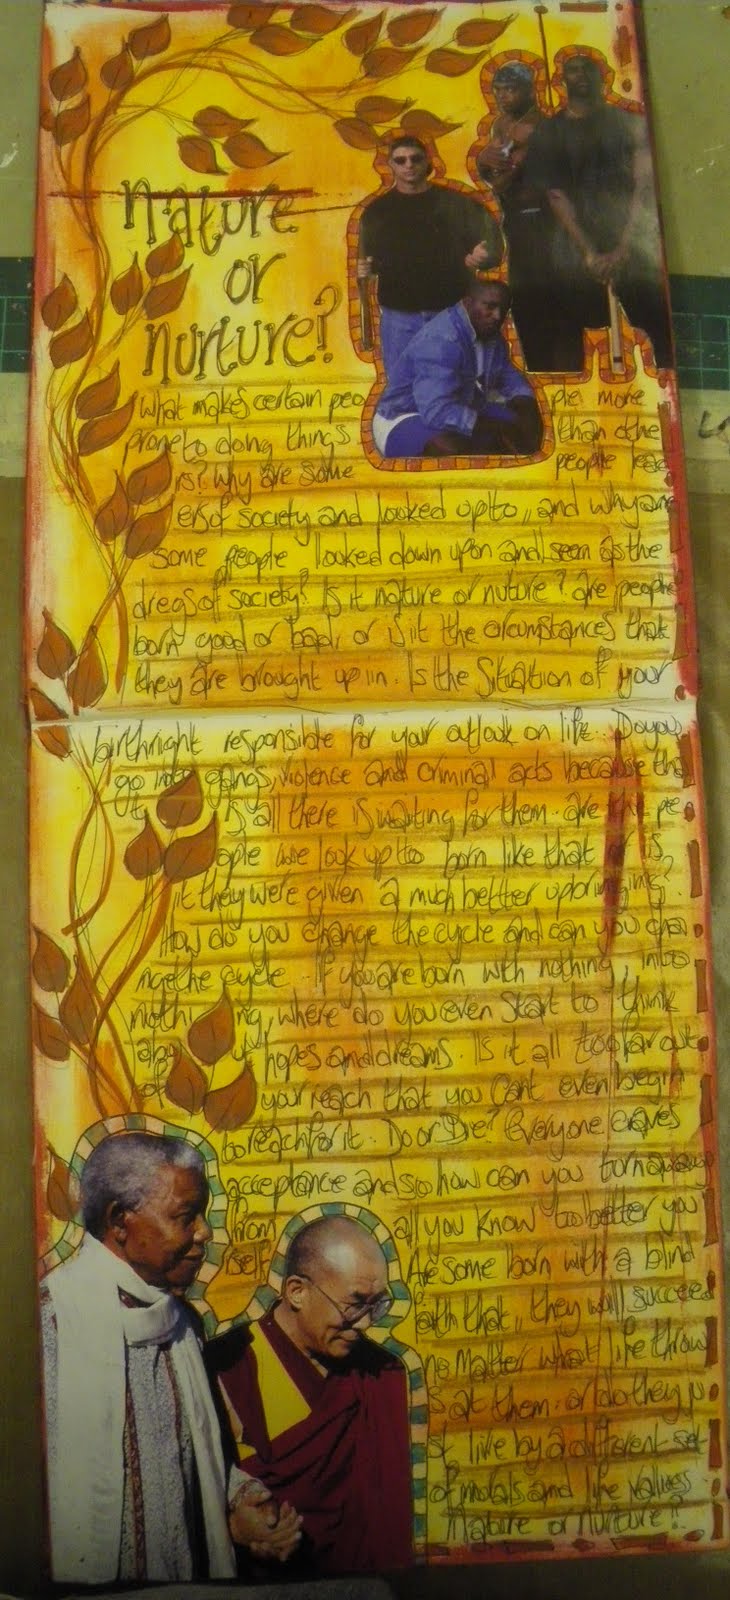 nature
or
nurture?
What makes certain peo ple more
prone to doing things than othe
rs? Why are some people lead
ers of society and looked up to, and why are
some people looked down upon and seen as the
dregs of society? Is it nature or nuture? are people
born good or bad, or is it the circumstances that
they are brought up in. Is the situation of your
birthright responsible for your outlook on life. Do you
go into gangs, violence and criminal acts because tha
t is all there is waiting for them. are the pe
ople we look up to born like that or is
it they were given a much better upbringing?
How do you change the cycle and can you cha
nge the cycle. If you are born with nothing, into
nothi ng, where do you even start to think
abo ut hopes and dreams. Is it all too far out
of your reach that you cant even begin
to reach for it. Do or Die? Everyone craves
acceptance and so how can you turn away
from all you know to better you
rself. Are some born with a blind
faith that, they will succeed
no matter what life throw
s at them. or do they ju
st live by a different set
of morals and life values.
Nature or Nurture?